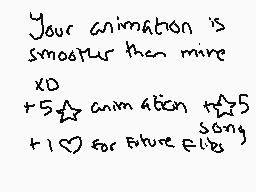 Your animation is
smoother than mine
XD
+5☆ animation +☆5
song
+1♡ for future flips